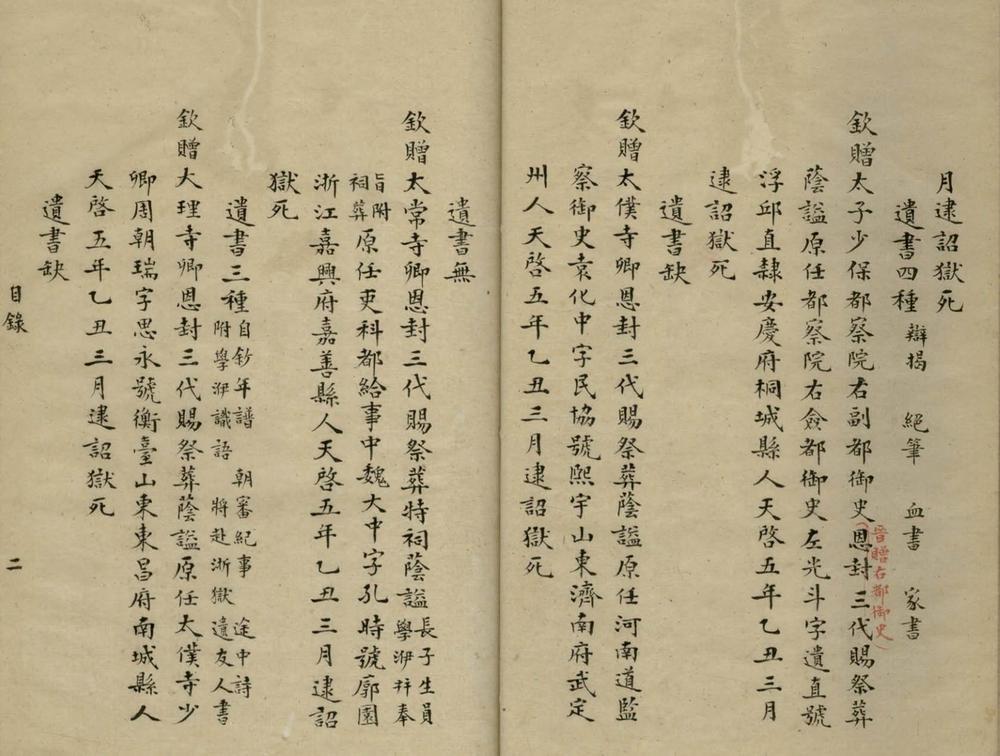 月逮詔獄死
遺書四種 辯揭 絕筆 血書 家書
欽贈太子少保都察院右副都御史恩封三代賜祭葬
(晉贈右都御史)
蔭謚原任都察院右僉都御史左光斗字遺直號
浮邱直隸安慶府桐城縣人天啓五年乙丑三月
逮詔獄死
遺書缺
欽贈太僕寺卿恩封三代賜祭葬蔭謚原任河南道監
察御史袁化中字民協號熙宇山東濟南府武定
州人天啓五年乙丑三月逮詔獄死
遺書無
欽贈太常寺卿恩封三代賜祭葬特祠蔭謚長子生員學洢幷奉
旨附祠葬原任吏科都給事中魏大中字孔時號廓園
浙江嘉興府嘉善縣人天啓五年乙丑三月逮詔
獄死
遺書三種 自鈔年譜 朝審紀事 途中詩
附學洢識語 將赴浙獄遺友人書
欽贈大理寺卿恩封三代賜祭葬蔭謚原任太僕寺少
卿周朝瑞字思永號衡臺山東東昌府南城縣人
天啓五年乙丑三月逮詔獄死
遺書缺
目錄 二